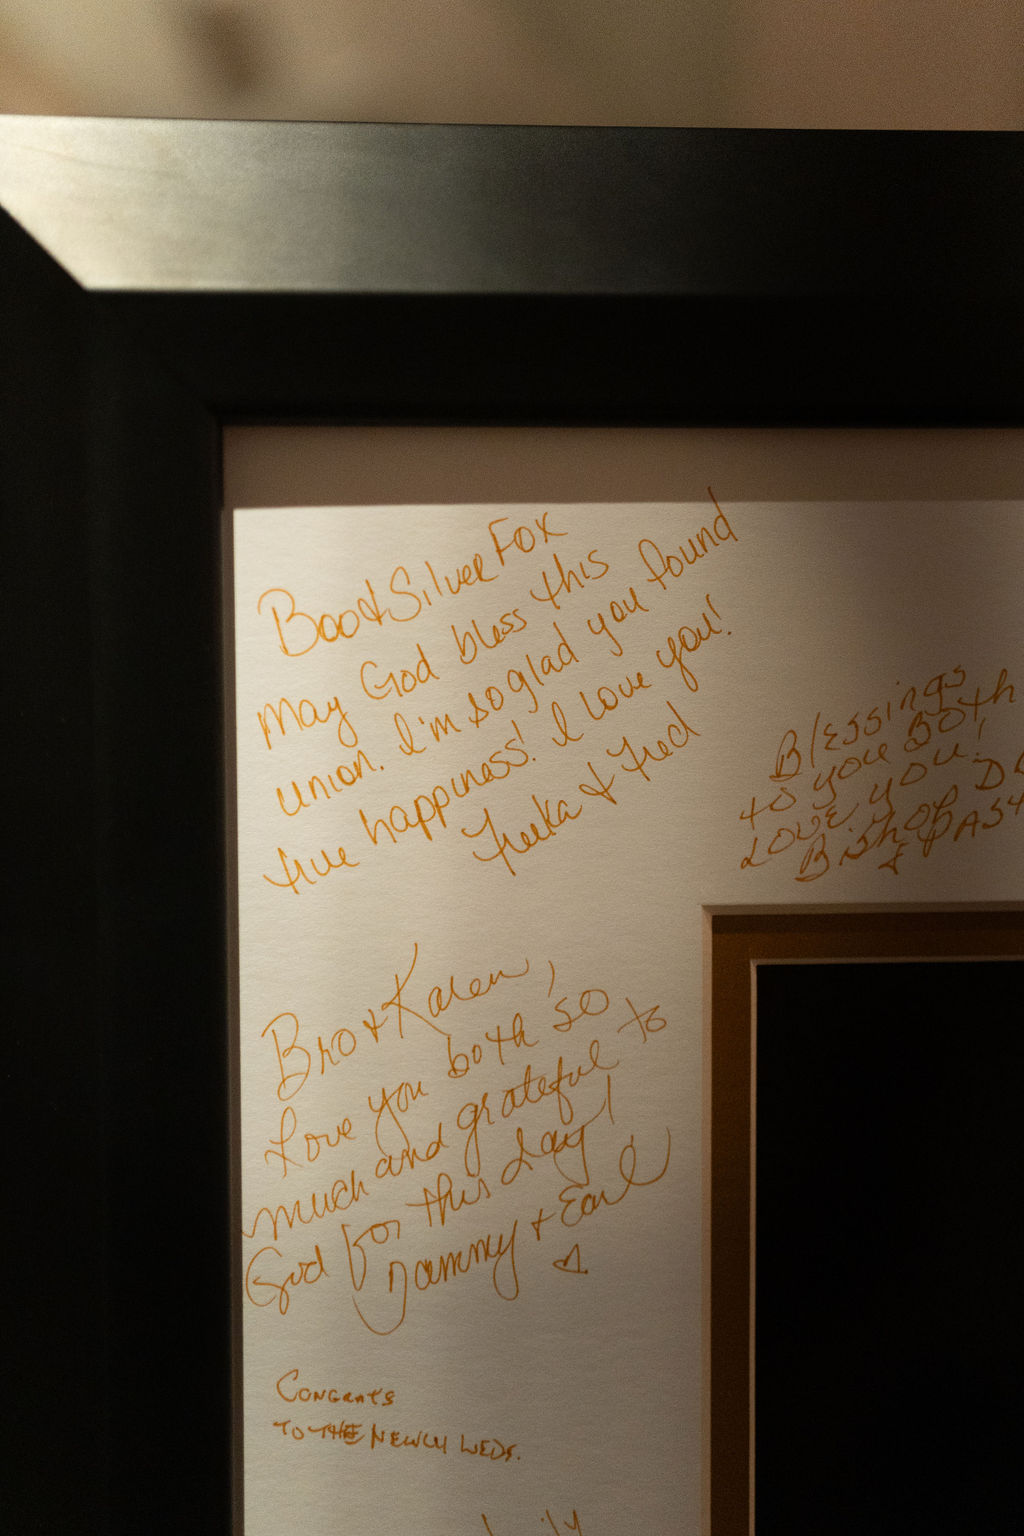 Boo & Silver Fox
May God bless this
union. I'm so glad you found
true happiness! I love you!
& Fred
Blessings
to you Both
Love you!
Bishop
&
Bro + Karen,
Love you both so
much and grateful to
God for this day!
Tammy + Earl
Congrats
to the newly weds.